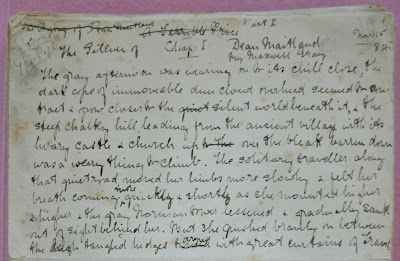 A Terrible Price Part I
The Silence of Dean Maitland
Chap. I by Maxwell Gray
The gray afternoon was wearing on to its chill close, the
dark cope of immovable dun cloud overhead seemed to con-
tract & grow closer to the quiet silent world beneath it, & the
steep chalky hill, leading from the ancient village with its
hoary castle & church up to the over the bleak barren down
was a weary thing to climb. The solitary traveller along
that quiet road moved her limbs more slowly & felt her
breath coming more quickly & shortly as she mounted higher
& higher & the gray Norman tower lessened & gradually sank
out of sight behind her. But she pushed bravely on between
the high tangled hedges with great curtains of